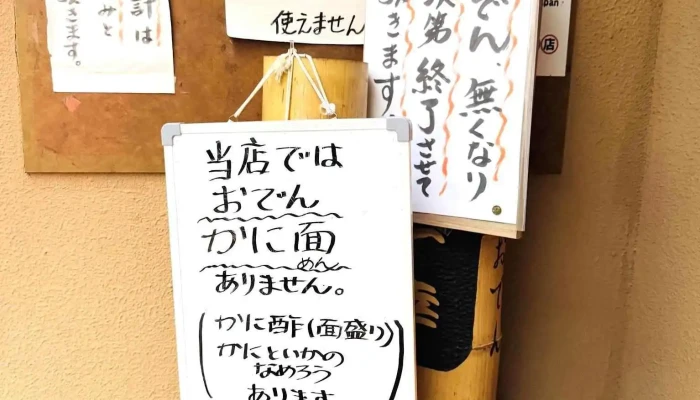 当店では
おでん
かに面
めん
ありません。
(かに酢(面盛り)
かにといかの
なめろう
あります
使えません
でん、無くなり
次第 終了させて
頂きます
計は
みと
きます。
おでん
店